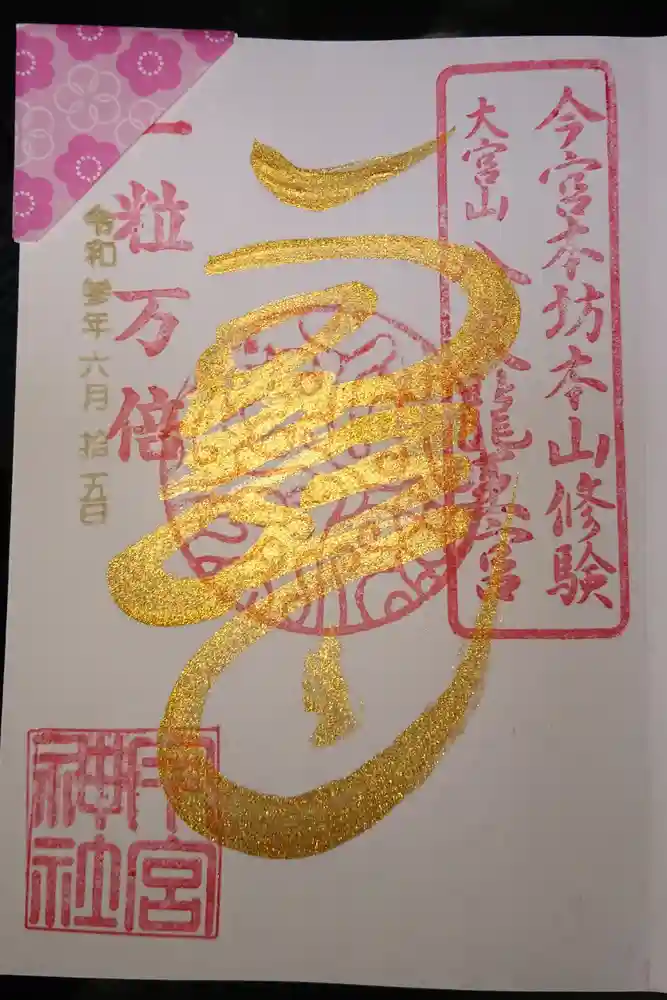 今宮本坊本山修験
大宮山
龍王宮
一粒万倍
令和参年六月拾五日
宮
神社